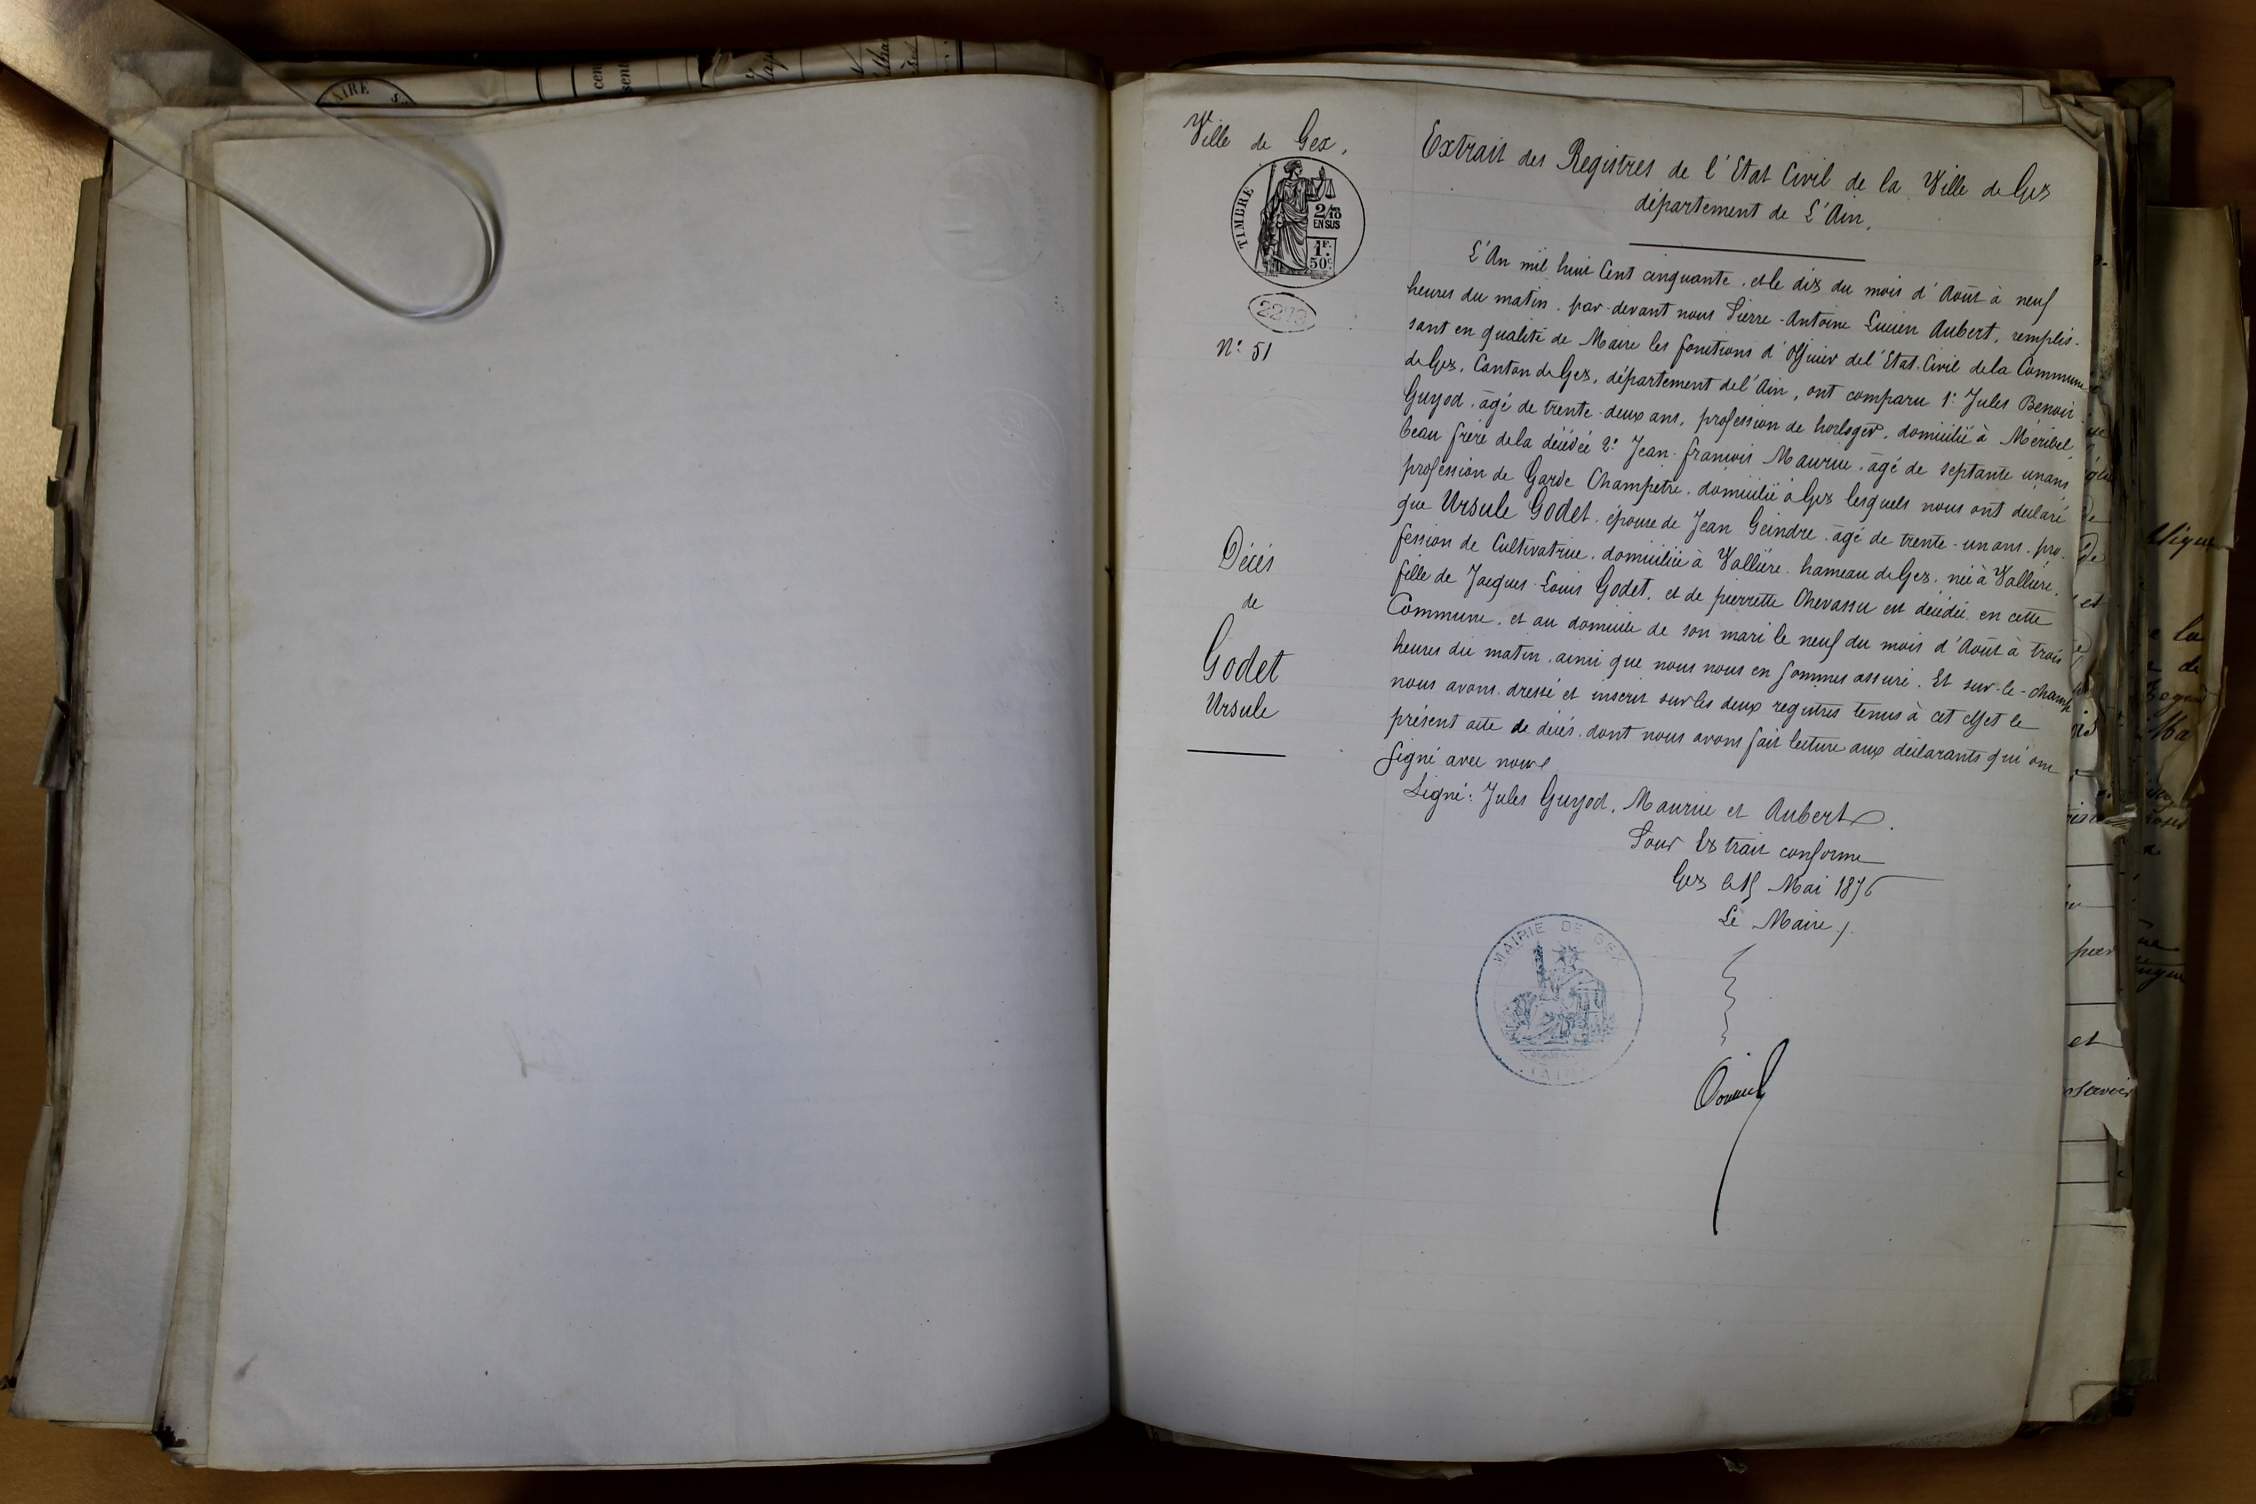 Ville de Gex.
TIMBRE
2/10
EN SUS
1F.
50c
N° 51
Décés
de
Godet
Ursule
Extrait des Registres de l'Etat Civil de la Ville de Gex
département de L'Ain.
L'An mil huit Cent cinquante, et le dix du mois d'Août à neuf
heures du matin, par-devant nous Pierre-Antoine Lucien Aubert, remplis-
sant en qualité de Maire les fonctions d'Officier de l'Etat-Civil de la Commune
de Gex, Canton de Gex, département de l'Ain, ont comparu 1° Jules Benoit
Guyod, âgé de trente-deux ans, profession de horloger, domicilié à Méribel
beau frère de la décédée 2° Jean-françois Maurice, âgé de septante un ans
profession de Garde Champêtre, domicilié à Gex lesquels nous ont déclaré
que Ursule Godet, épouse de Jean Geindre, âgé de trente-un ans, pro-
fession de Cultivatrice, domiciliée à Vallière, hameau de Gex, née à Vallière,
fille de Jacques-Louis Godet, et de pierrette Chevassu est décédée en cette
Commune, et au domicile de son mari le neuf du mois d'Août à trois
heures du matin, ainsi que nous nous en sommes assuré. Et sur-le-champ
nous avons dressé et inscrit sur les deux registres tenus à cet effet le
présent acte de décés, dont nous avons fait lecture aux déclarants qui ont
signé avec nous
Signé: Jules Guyod, Maurice et Aubert.
Pour Extrait conforme
Gex le 15 Mai 1876
Le Maire,
MAIRIE DE GEX
(AIN)